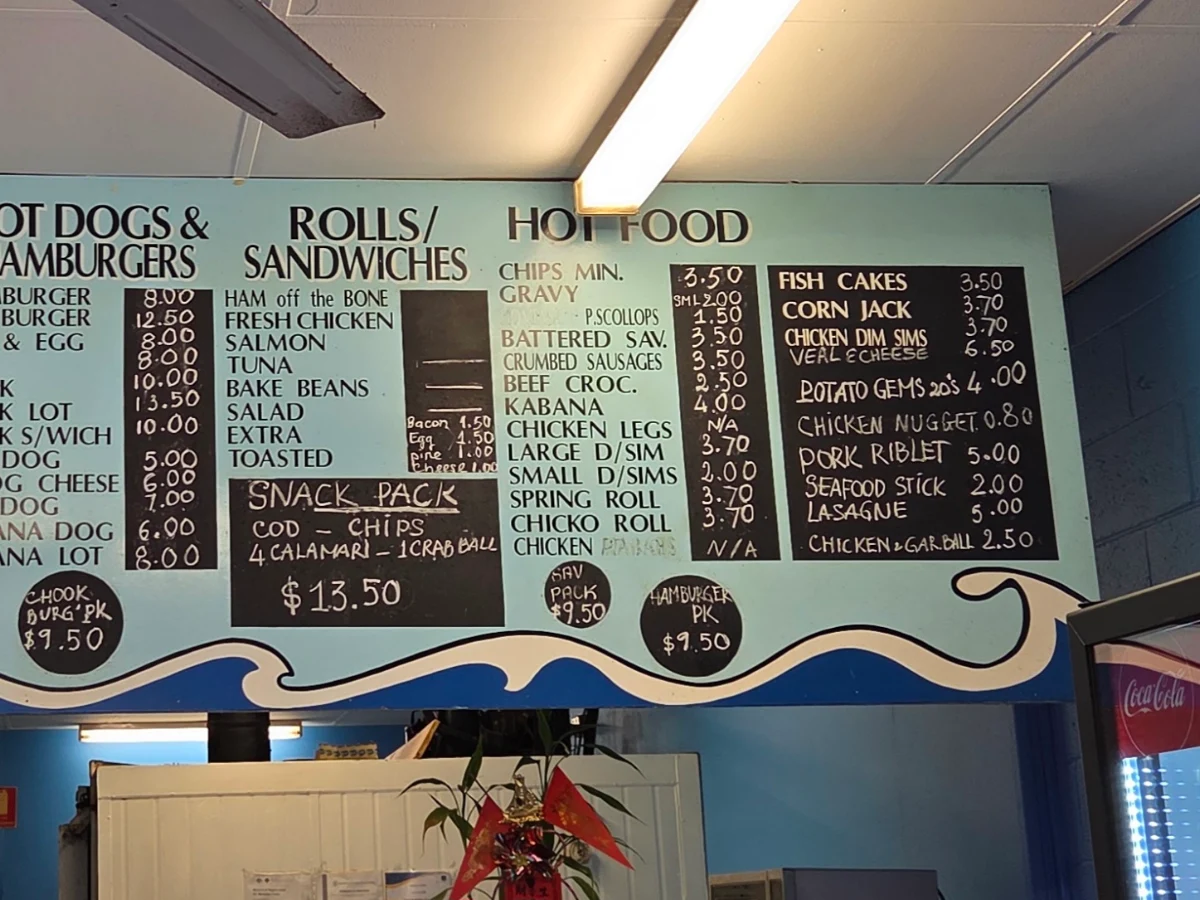 OT DOGS &
AMBURGERS
BURGER 8.00
BURGER 12.50
& EGG 8.00
8.00
K 10.00
K LOT 13.50
K S/WICH 10.00
DOG 5.00
OG CHEESE 6.00
DOG 7.00
ANA DOG 6.00
ANA LOT 8.00
CHOOK
BURG'PK
$9.50
ROLLS/
SANDWICHES
HAM off the BONE
FRESH CHICKEN
SALMON
TUNA
BAKE BEANS
SALAD
EXTRA
TOASTED
Bacon 1.50
Egg 1.50
pine 1.00
cheese 1.00
SNACK PACK
COD - CHIPS
4 CALAMARI - 1 CRAB BALL
$13.50
HOT FOOD
CHIPS MIN. 3.50
GRAVY SML 2.00
P.SCOLLOPS 1.50
BATTERED SAV. 3.50
CRUMBED SAUSAGES 3.50
BEEF CROC. 2.50
KABANA 4.00
CHICKEN LEGS N/A
LARGE D/SIM 3.70
SMALL D/SIMS 2.00
SPRING ROLL 3.70
CHICKO ROLL 3.70
CHICKEN N/A
SAV
PACK
$9.50
HAMBURGER
PK
$9.50
FISH CAKES 3.50
CORN JACK 3.70
CHICKEN DIM SIMS 3.70
VEAL & CHEESE 6.50
POTATO GEMS 20'S 4.00
CHICKEN NUGGET 0.80
PORK RIBLET 5.00
SEAFOOD STICK 2.00
LASAGNE 5.00
CHICKEN & GAR BALL 2.50
Coca-Cola